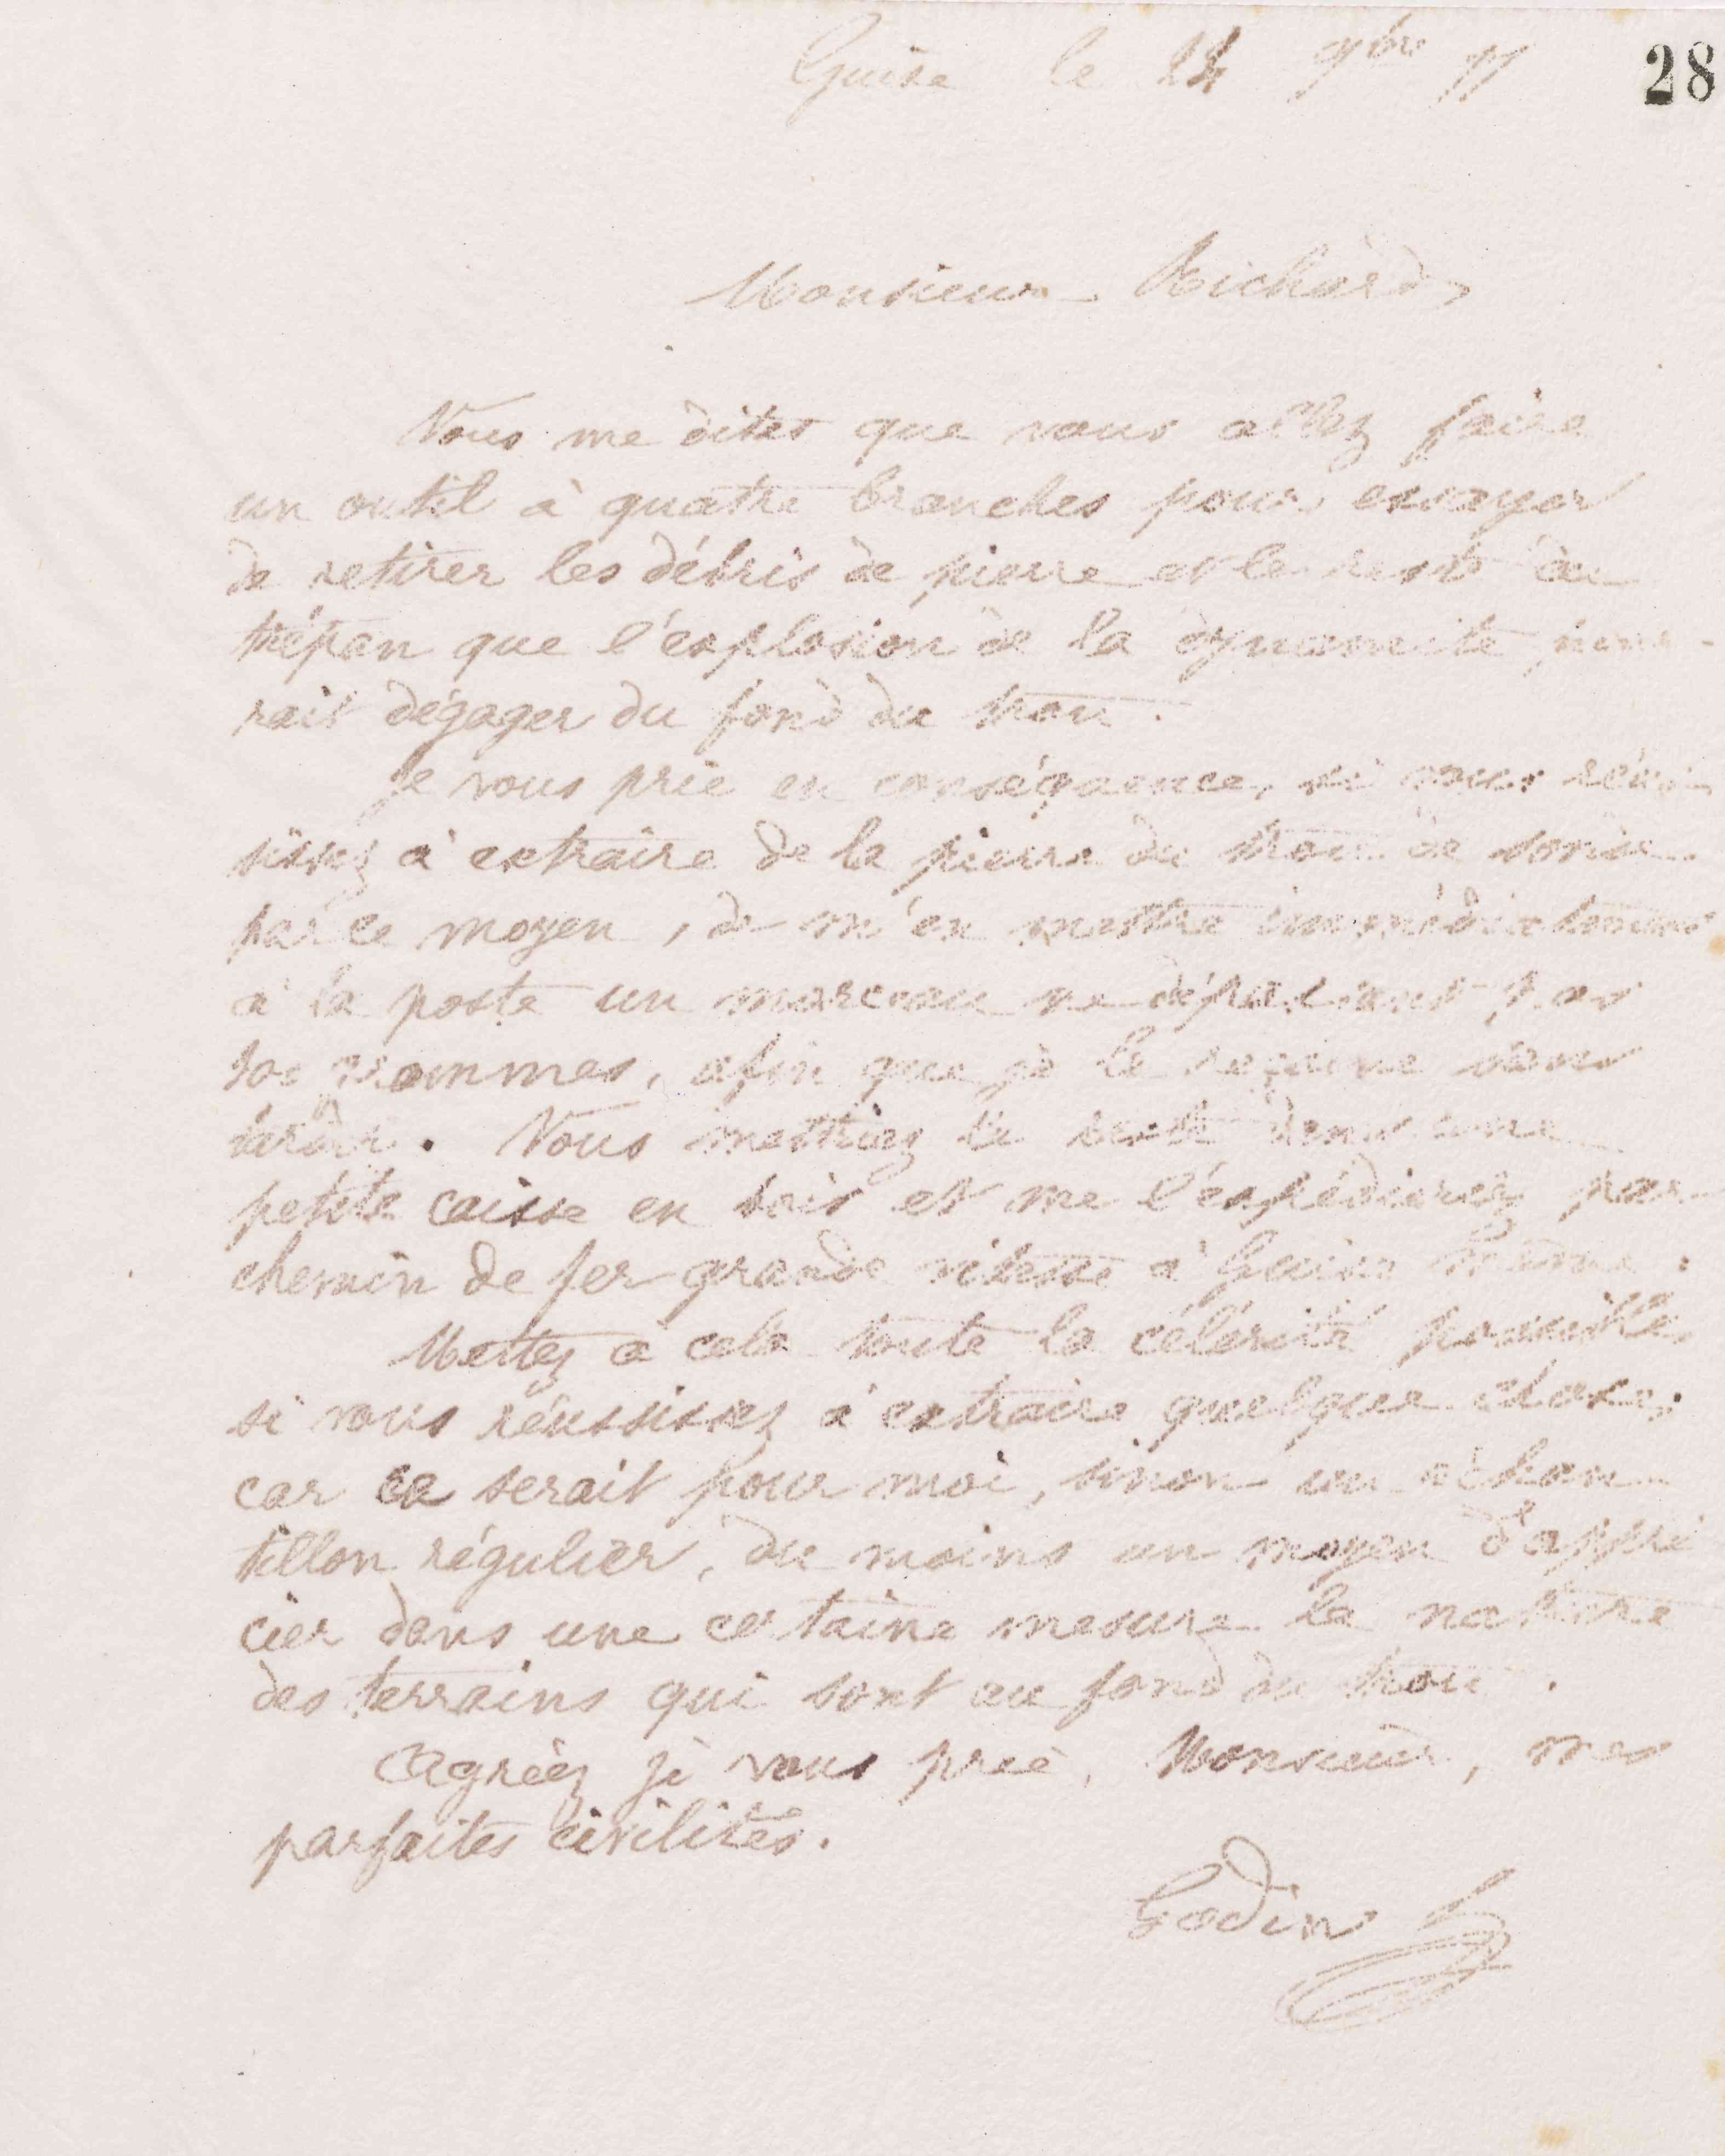 Guise le 24 9bre 77 28
Monsieur Richard,
Vous me dites que vous allez faire
un outil à quatre branches pour essayer
de retirer les débris de pierre et le reste du
trépan que l'explosion de la dynamite pour-
rait dégager du fond du trou.
Je vous prie en conséquence, si vous réus-
sissez à extraire de la pierre du trou de sonde
par ce moyen, de m'en mettre immédiatement
à la poste un morceau ne dépassant pas
grammes, afin que je le reçoive sans
tarder. Vous mettriez le reste dans une
petite caisse en bois et me l'expédierez par
chemin de fer grande vitesse à Guise
Mettez à cela toute la célérité possible,
si vous réussissez à extraire quelque chose;
car ce serait pour moi, sinon un échan-
tillon régulier, du moins un moyen d'appré
cier dans une certaine mesure la nature
des terrains qui sont au fond du trou.
Agréez je vous prie, Monsieur, mes
parfaites civilités.
Godin